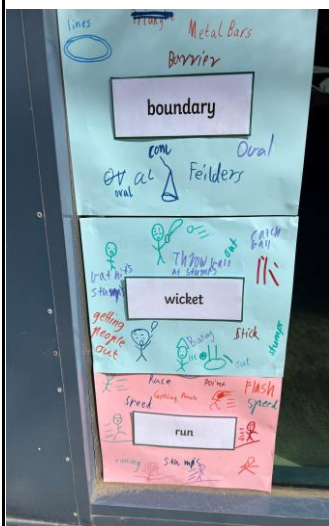 lines
Metal Bars
Barrier
boundary
cone
Oval
oval
Feilders
out
catch
ball
Throw ball
at stumps
bat hits
stumps
wicket
getting
people
out
Stick
stumps
out
Race
Point
Flash
Speed
Getting Points
speed
run
runing
stamps